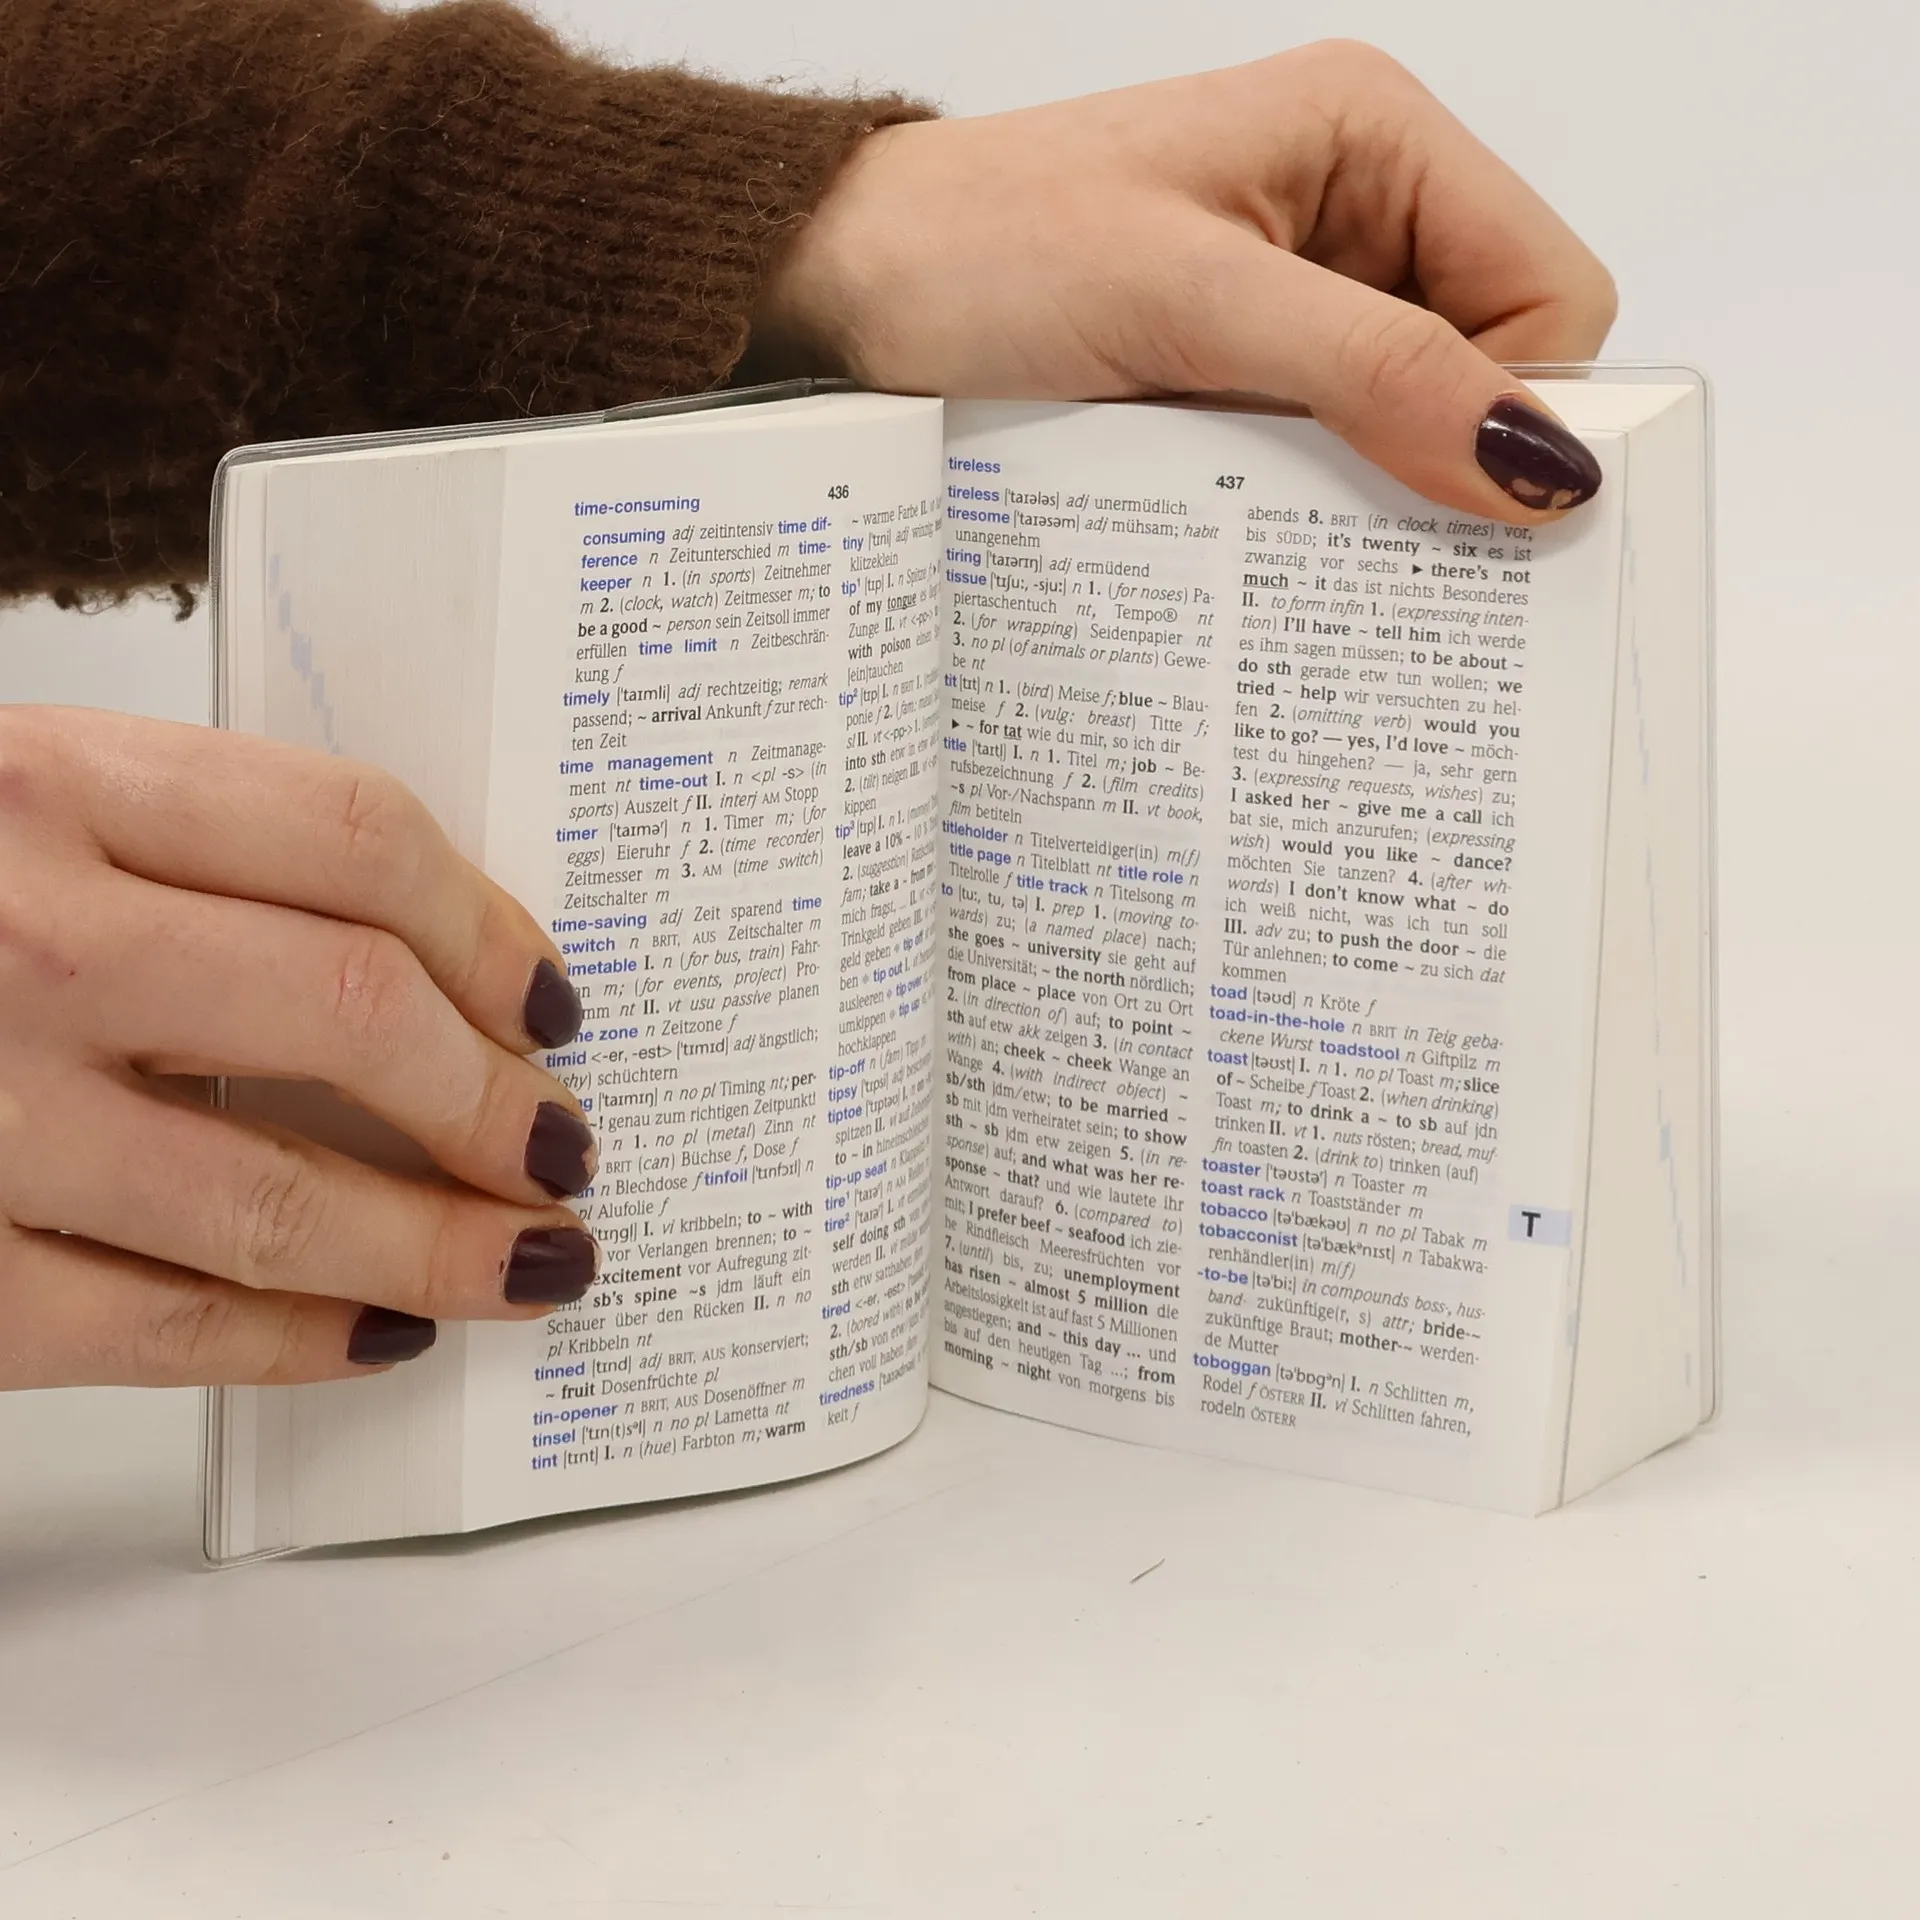 time-consuming
436
consuming adj zeitintensiv time dif-
ference n Zeitunterschied m time-
keeper n 1. (in sports) Zeitnehmer
m 2. (clock, watch) Zeitmesser m; to
be a good ~ person sein Zeitsoll immer
erfüllen time limit n Zeitbeschrän-
kung f
timely ['taɪmli] adj rechtzeitig; remark
passend; ~ arrival Ankunft f zur rech-
ten Zeit
time management n Zeitmanage-
ment nt time-out I. n <pl -s> (in
sports) Auszeit f II. interj AM Stopp
timer ['taɪməʳ] n 1. Timer m; (for
eggs) Eieruhr f 2. (time recorder)
Zeitmesser m 3. AM (time switch)
Zeitschalter m
time-saving adj Zeit sparend time
switch n BRIT, AUS Zeitschalter m
imetable I. n (for bus, train) Fahr-
an m; (for events, project) Pro-
mm nt II. vt usu passive planen
ne zone n Zeitzone f
timid <-er, -est> ['tɪmɪd] adj ängstlich;
(shy) schüchtern
ng ['taɪmɪŋ] n no pl Timing nt; per-
~! genau zum richtigen Zeitpunkt!
] n 1. no pl (metal) Zinn nt
BRIT (can) Büchse f, Dose f
n n Blechdose f tinfoil ['tɪnfɔɪl] n
pl Alufolie f
['tɪŋgl] I. vi kribbeln; to ~ with
vor Verlangen brennen; to ~
excitement vor Aufregung zit-
tern; sb's spine ~s jdm läuft ein
Schauer über den Rücken II. n no
pl Kribbeln nt
tinned [tɪnd] adj BRIT, AUS konserviert;
~ fruit Dosenfrüchte pl
tin-opener n BRIT, AUS Dosenöffner m
tinsel ['tɪn(t)sᵊl] n no pl Lametta nt
tint [tɪnt] I. n (hue) Farbton m; warm
~ warme Farbe II.
tiny ['tɪni] adj winzig
klitzeklein
tip¹ [tɪp] I. n Spitze f
of my tongue es
Zunge II. vt <-pp->
with poison
[ein]tauchen
tip² [tɪp] I. n BRIT
ponie f 2. (fam:
sl II. vt <-pp-> 1.
into sth etw in etw
2. (tilt) neigen III.
kippen
tip³ [tɪp] I. n 1.
leave a 10% ~ 10 %
2. (suggestion)
fam; take a ~ from
mich fragst, ... II.
Trinkgeld geben III.
geld geben ◆ tip off
ben ◆ tip out I.
ausleeren ◆ tip over
umkippen ◆ tip up
hochklappen
tip-off n (fam) Tipp
tipsy ['tɪpsi] adj
tiptoe ['tɪptəʊ] I. n
spitzen II. vi auf
to ~ in hineinschleichen
tip-up seat n
tire¹ ['taɪəʳ] n AM Reifen
tire² ['taɪəʳ] I. vt
self doing sth
werden II. vi
sth etw satthaben
tired <-er, -est>
2. (bored with)
sth/sb von etw
chen voll haben
tiredness
keit f
tireless
437
tireless ['taɪələs] adj unermüdlich
tiresome ['taɪəsəm] adj mühsam; habit
unangenehm
tiring ['taɪərɪŋ] adj ermüdend
tissue ['tɪʃu:, -sju:] n 1. (for noses) Pa-
piertaschentuch nt, Tempo® nt
2. (for wrapping) Seidenpapier nt
3. no pl (of animals or plants) Gewe-
be nt
tit [tɪt] n 1. (bird) Meise f; blue ~ Blau-
meise f 2. (vulg: breast) Titte f;
▸ ~ for tat wie du mir, so ich dir
title ['taɪtl] I. n 1. Titel m; job ~ Be-
rufsbezeichnung f 2. (film credits)
~s pl Vor-/Nachspann m II. vt book,
film betiteln
titleholder n Titelverteidiger(in) m(f)
title page n Titelblatt nt title role n
Titelrolle f title track n Titelsong m
to [tu:, tu, tə] I. prep 1. (moving to-
wards) zu; (a named place) nach;
she goes ~ university sie geht auf
die Universität; ~ the north nördlich;
from place ~ place von Ort zu Ort
2. (in direction of) auf; to point ~
sth auf etw akk zeigen 3. (in contact
with) an; cheek ~ cheek Wange an
Wange 4. (with indirect object) ~
sb/sth jdm/etw; to be married ~
sb mit jdm verheiratet sein; to show
sth ~ sb jdm etw zeigen 5. (in re-
sponse) auf; and what was her re-
sponse ~ that? und wie lautete ihr
Antwort darauf? 6. (compared to)
mit; I prefer beef ~ seafood ich zie-
he Rindfleisch Meeresfrüchten vor
7. (until) bis, zu; unemployment
has risen ~ almost 5 million die
Arbeitslosigkeit ist auf fast 5 Millionen
angestiegen; and ~ this day ... und
bis auf den heutigen Tag ...; from
morning ~ night von morgens bis
abends 8. BRIT (in clock times) vor,
bis SÜDD; it's twenty ~ six es ist
zwanzig vor sechs ▸ there's not
much ~ it das ist nichts Besonderes
II. to form infin 1. (expressing inten-
tion) I'll have ~ tell him ich werde
es ihm sagen müssen; to be about ~
do sth gerade etw tun wollen; we
tried ~ help wir versuchten zu hel-
fen 2. (omitting verb) would you
like to go? — yes, I'd love ~ möch-
test du hingehen? — ja, sehr gern
3. (expressing requests, wishes) zu;
I asked her ~ give me a call ich
bat sie, mich anzurufen; (expressing
wish) would you like ~ dance?
möchten Sie tanzen? 4. (after wh-
words) I don't know what ~ do
ich weiß nicht, was ich tun soll
III. adv zu; to push the door ~ die
Tür anlehnen; to come ~ zu sich dat
kommen
toad [təʊd] n Kröte f
toad-in-the-hole n BRIT in Teig geba-
ckene Wurst toadstool n Giftpilz m
toast [təʊst] I. n 1. no pl Toast m; slice
of ~ Scheibe f Toast 2. (when drinking)
Toast m; to drink a ~ to sb auf jdn
trinken II. vt 1. nuts rösten; bread, muf-
fin toasten 2. (drink to) trinken (auf)
toaster ['təʊstəʳ] n Toaster m
toast rack n Toastständer m
tobacco [tə'bækəʊ] n no pl Tabak m
tobacconist [tə'bækᵊnɪst] n Tabakwa-
renhändler(in) m(f)
-to-be [tə'bi:] in compounds boss-, hus-
band- zukünftige(r, s) attr; bride-~
zukünftige Braut; mother-~ werden-
de Mutter
toboggan [tə'bɒgᵊn] I. n Schlitten m,
Rodel f ÖSTERR II. vi Schlitten fahren,
rodeln ÖSTERR
T